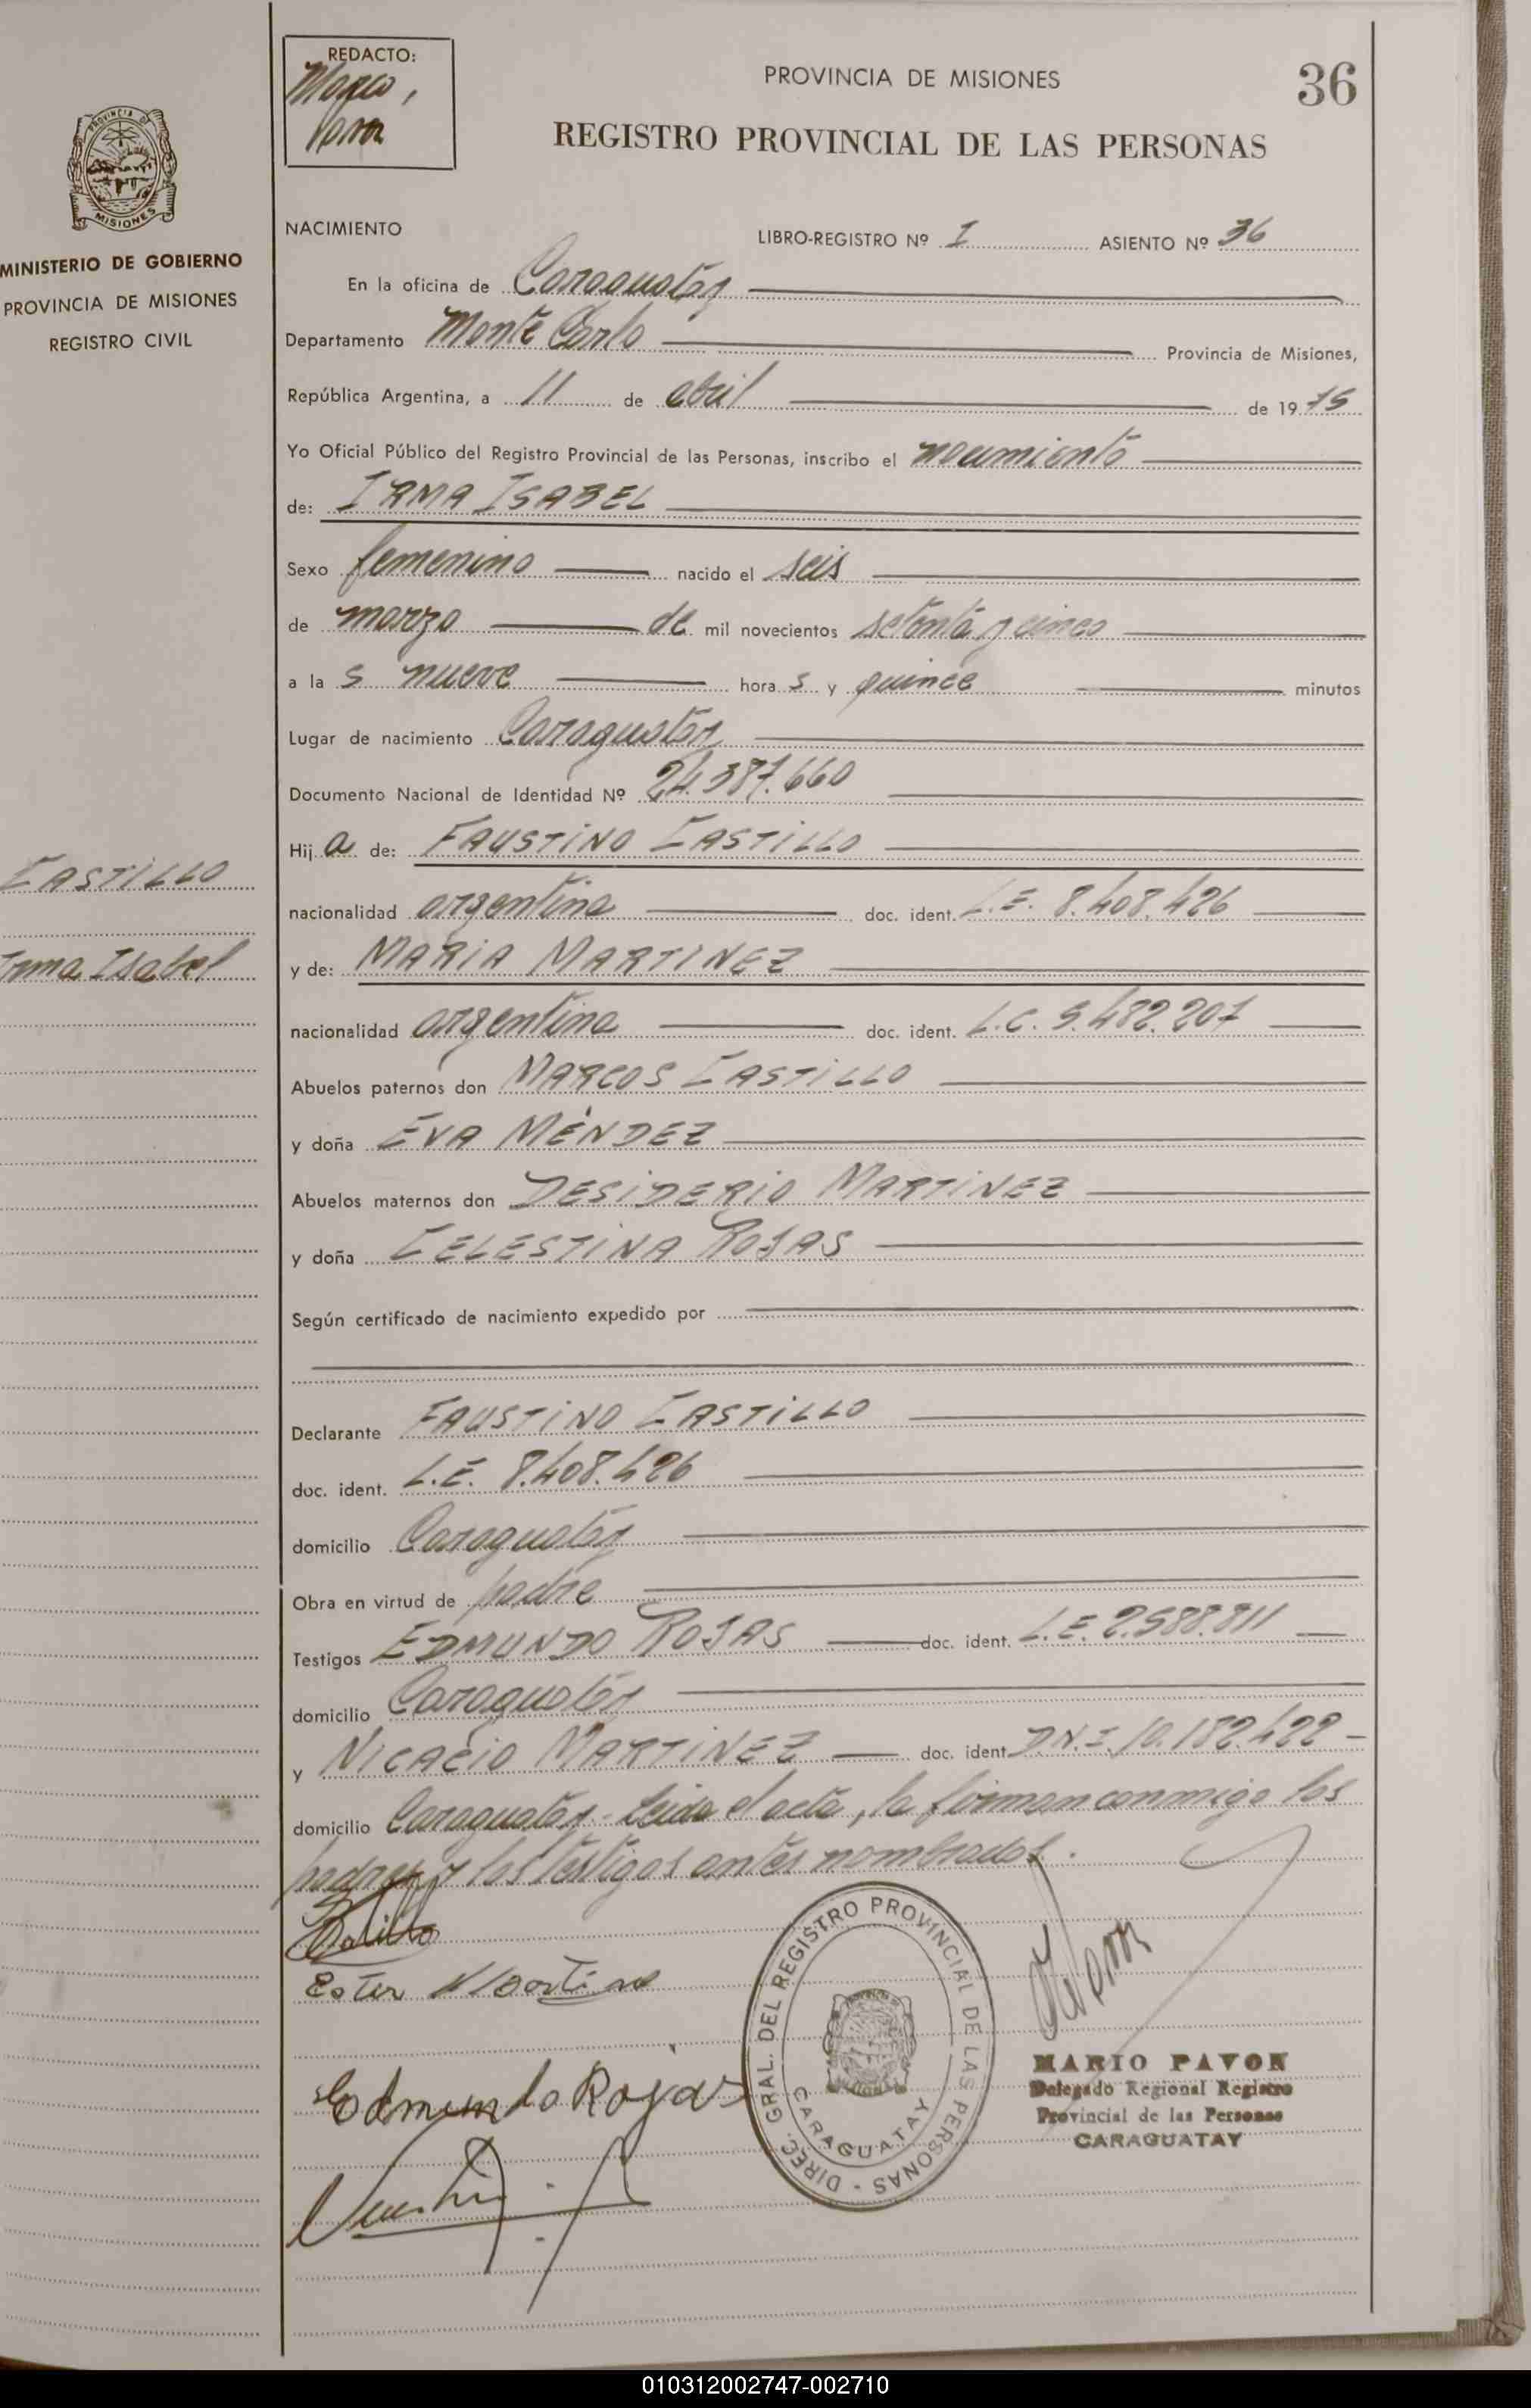 REDACTO:
PROVINCIA DE MISIONES
36
REGISTRO PROVINCIAL DE LAS PERSONAS
PROVINCIA DE
MISIONES
MINISTERIO DE GOBIERNO
PROVINCIA DE MISIONES
REGISTRO CIVIL
NACIMIENTO LIBRO-REGISTRO Nº I ASIENTO Nº 36
En la oficina de Caraguatáy
Departamento Monte Carlo Provincia de Misiones,
República Argentina, a 11 de abril de 1975
Yo Oficial Público del Registro Provincial de las Personas, inscribo el nacimiento
de: IRMA ISABEL
Sexo femenino nacido el seis
de marzo de mil novecientos setenta y cinco
a la s nueve hora s y quince minutos
Lugar de nacimiento Caraguatáy
Documento Nacional de Identidad Nº 24.387.660
Hij a de: FAUSTINO CASTILLO
CASTILLO
nacionalidad argentina doc. ident. L.E. 8.408.426
Irma Isabel
y de: MARIA MARTINEZ
nacionalidad argentina doc. ident. L.C. 5.482.207
Abuelos paternos don MARCOS CASTILLO
y doña EVA MÉNDEZ
Abuelos maternos don DESIDERIO MARTINEZ
y doña CELESTINA ROJAS
Según certificado de nacimiento expedido por
Declarante FAUSTINO CASTILLO
doc. ident. L.E. 8.408.426
domicilio Caraguatáy
Obra en virtud de padre
Testigos EDMUNDO ROJAS doc. ident. L.E. 2.588.811
domicilio Caraguatáy
y NICACIO MARTINEZ doc. ident. D.N.I. 10.182.422 -
domicilio Caraguatáy.- Leida el acta, la firman conmigo los
padres y los testigos antes nombrados.
Ester
Edmundo Rojas
DIREC. GRAL. DEL REGISTRO PROVINCIAL DE LAS PERSONAS -
CARAGUATAY
MARIO PAVON
Delegado Regional Registro
Provincial de las Personas
CARAGUATAY
010312002747-002710